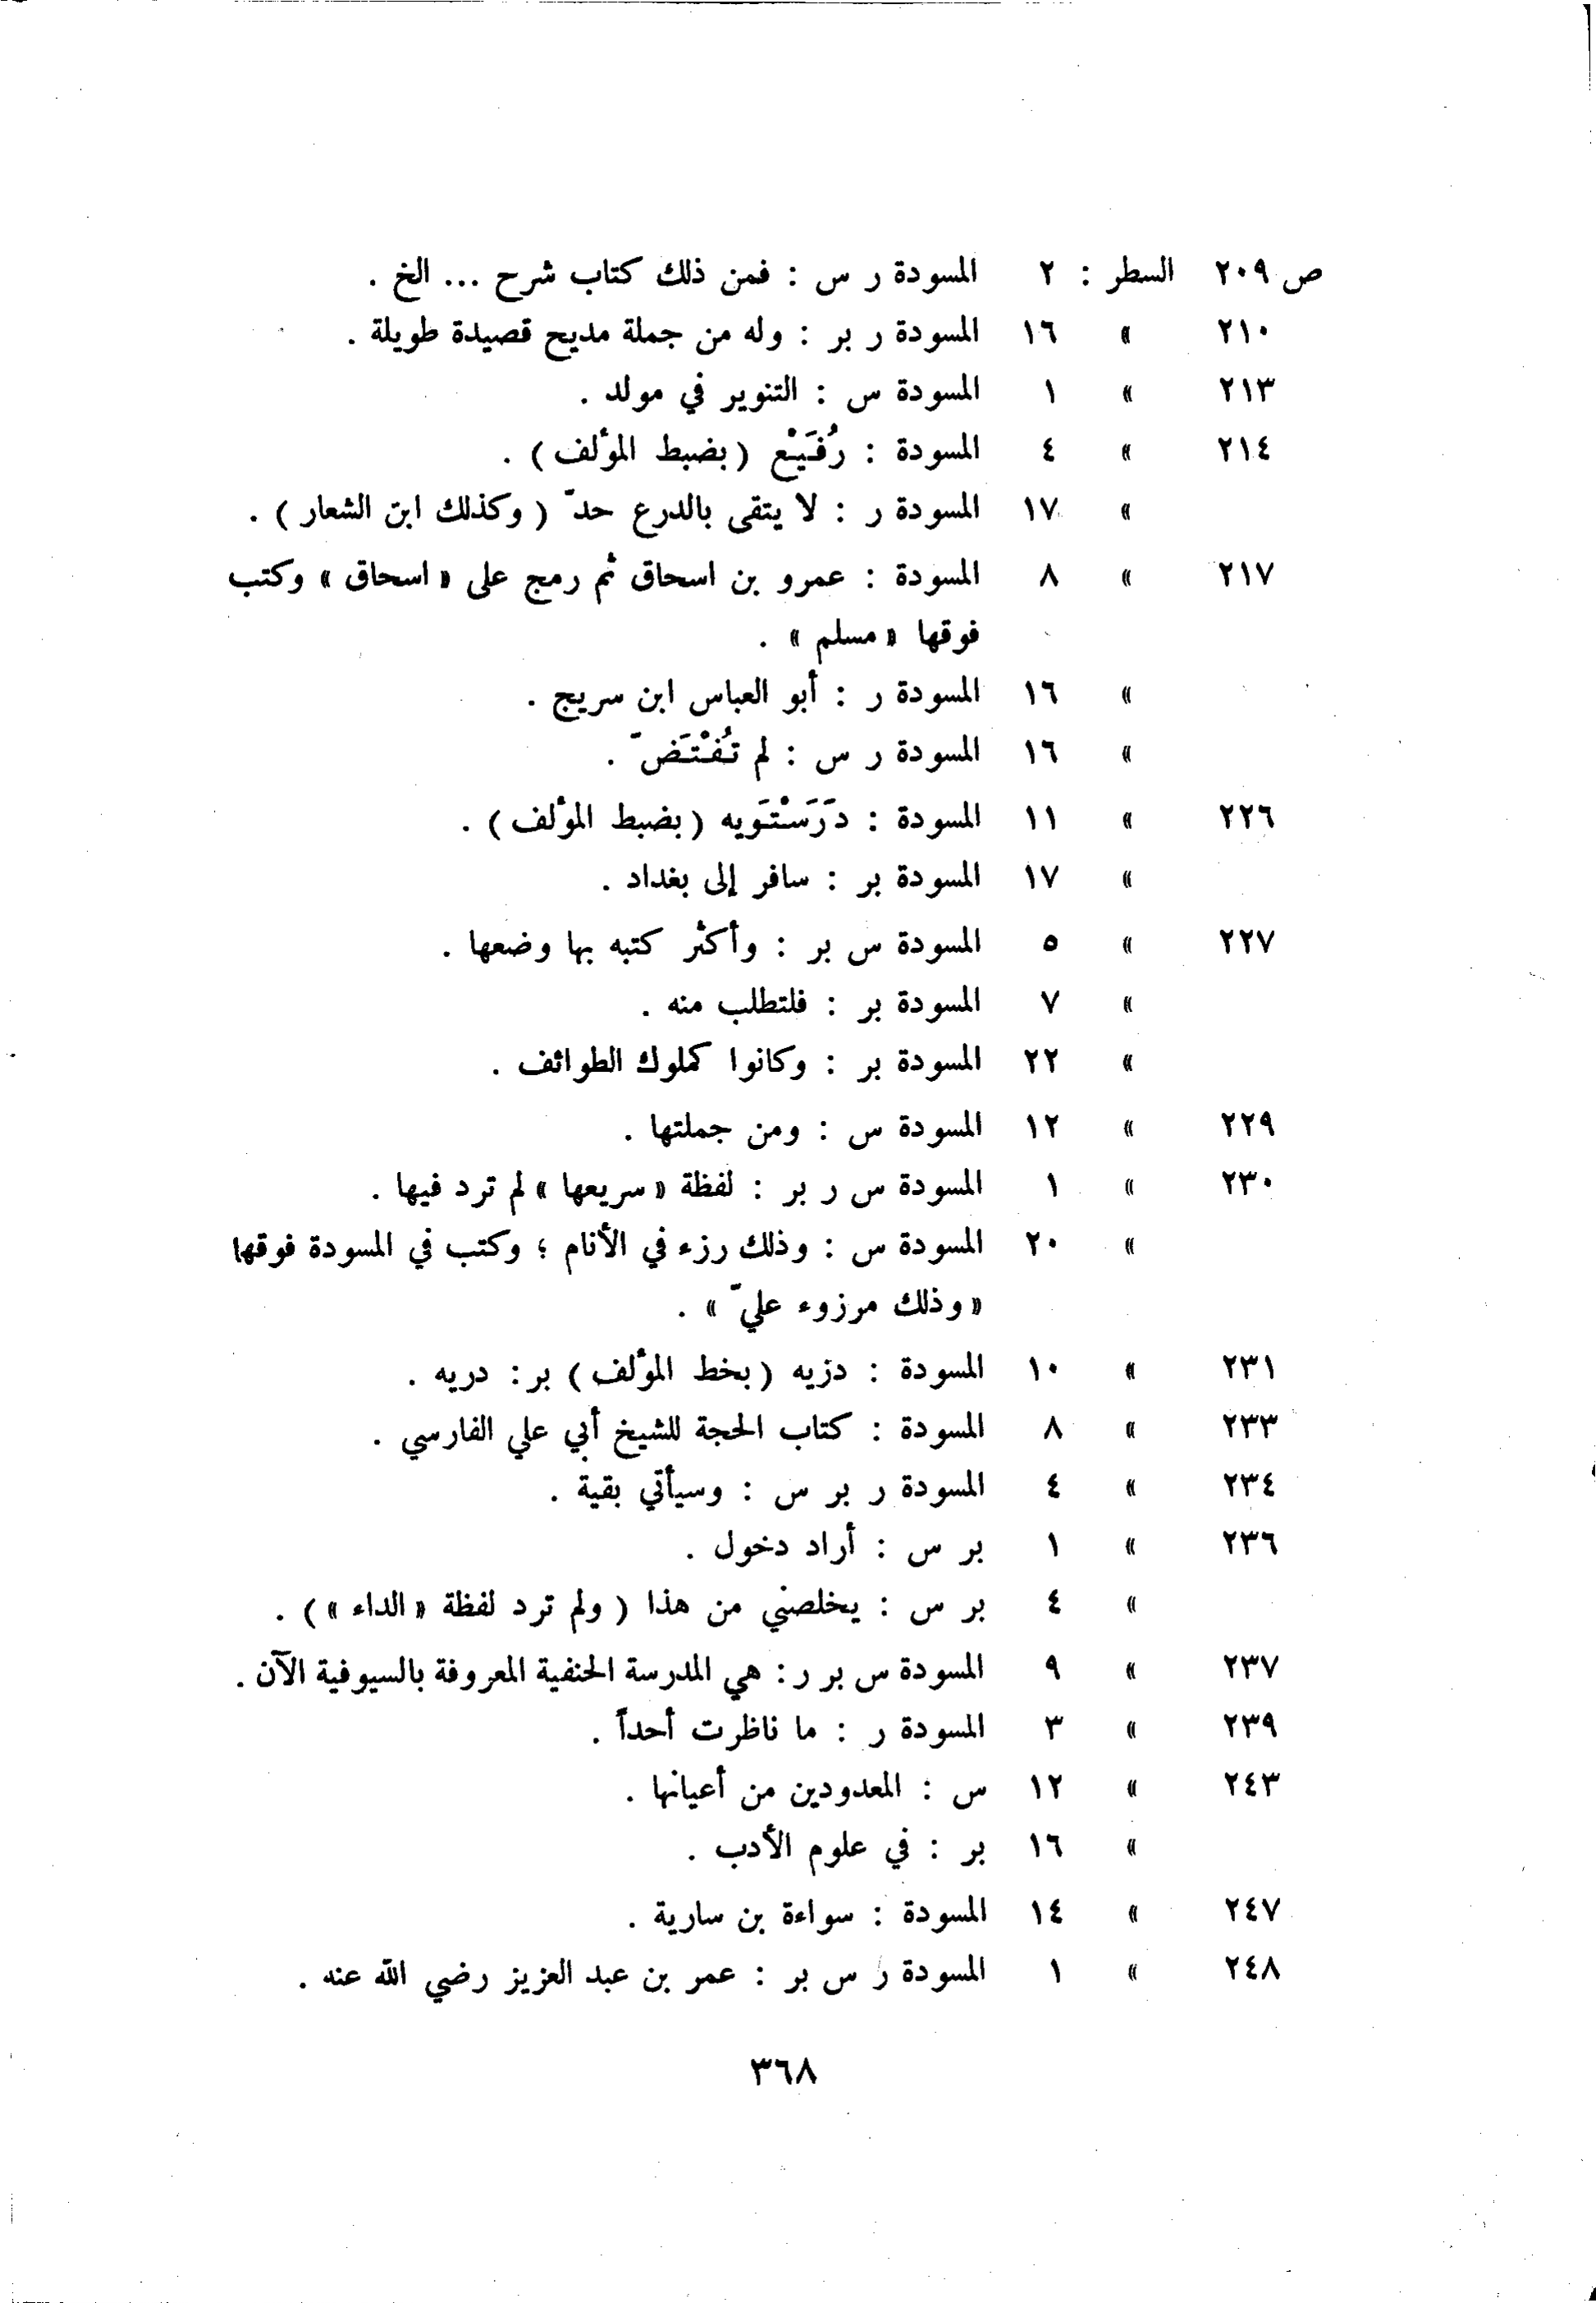 ص ٢٠٩ السطر : ٢ المسودة ر س : فمن ذلك كتاب شرح ... الخ .
٢١٠ » ١٦ المسودة ر بر : وله من جملة مديح قصيدة طويلة .
٢١٣ » ١ المسودة س : التنوير في مولد .
٢١٤ » ٤ المسودة : رُفَيْع ( بضبط المؤلف ) .
» ١٧ المسودة ر : لا يتقى بالدرع حدّ ( وكذلك ابن الشعار ) .
٢١٧ » ٨ المسودة : عمرو بن اسحاق ثم رمج على « اسحاق » وكتب
فوقها « مسلم » .
» ١٦ المسودة ر : أبو العباس ابن سريج .
» ١٦ المسودة ر س : لم تُفْتَضّ .
٢٢٦ » ١١ المسودة : دَرَسْتَويه ( بضبط المؤلف ) .
» ١٧ المسودة بر : سافر إلى بغداد .
٢٢٧ » ٥ المسودة س بر : وأكثر كتبه بها وضعها .
» ٧ المسودة بر : فلتطلب منه .
» ٢٢ المسودة بر : وكانوا كملوك الطوائف .
٢٢٩ » ١٢ المسودة س : ومن جملتها .
٢٣٠ » ١ المسودة س ر بر : لفظة « سريعها » لم ترد فيها .
» ٢٠ المسودة س : وذلك رزء في الأنام ؛ وكتب في المسودة فوقها
« وذلك مرزوء عليّ » .
٢٣١ » ١٠ المسودة : دزيه ( بخط المؤلف ) بر : دريه .
٢٣٣ » ٨ المسودة : كتاب الحجة للشيخ أبي علي الفارسي .
٢٣٤ » ٤ المسودة ر بر س : وسيأتي بقية .
٢٣٦ » ١ بر س : أراد دخول .
» ٤ بر س : يخلصني من هذا ( ولم ترد لفظة « الداء » ) .
٢٣٧ » ٩ المسودة س بر ر : هي المدرسة الحنفية المعروفة بالسيوفية الآن .
٢٣٩ » ٣ المسودة ر : ما ناظرت أحداً .
٢٤٣ » ١٢ س : المعدودين من أعيانها .
» ١٦ بر : في علوم الأدب .
٢٤٧ » ١٤ المسودة : سواءة بن سارية .
٢٤٨ » ١ المسودة ر س بر : عمر بن عبد العزيز رضي الله عنه .
٣٦٨